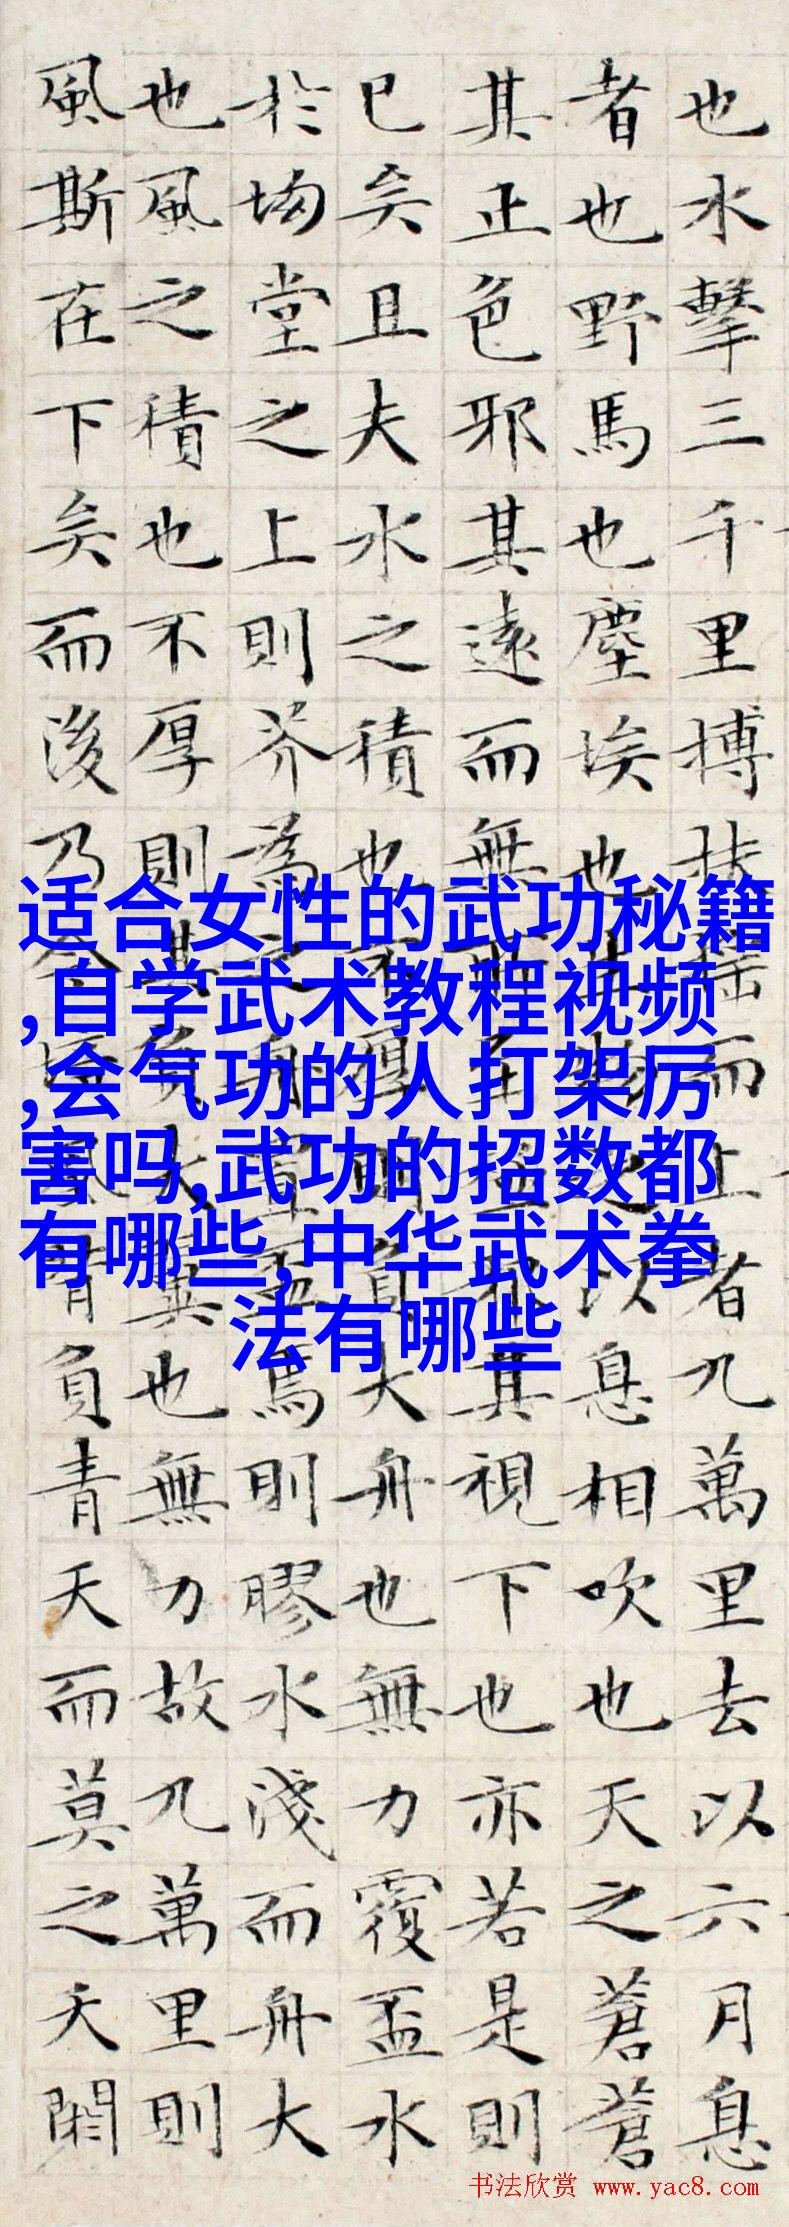 也水擊三千里搏扶搖而上者九萬里去以六月息
者也野馬也塵埃也生物之以息相吹也天之蒼蒼
其正色邪其遠而無所至極邪其視下也亦若是則
已矣且夫水之積也不厚則負大舟也無力覆盃水
於坳堂之上則芥為之舟置盃焉則膠水淺而舟大
也風之積也不厚則其負大翼也無力故九萬里則
風斯在下矣而後乃今培風背負青天而莫之夭閼
适合女性的武功秘籍
,自学武术教程视频
,会气功的人打架厉
害吗,武功的招数都
有哪些,中华武术拳
法有哪些
书法欣赏 www.yac8.com